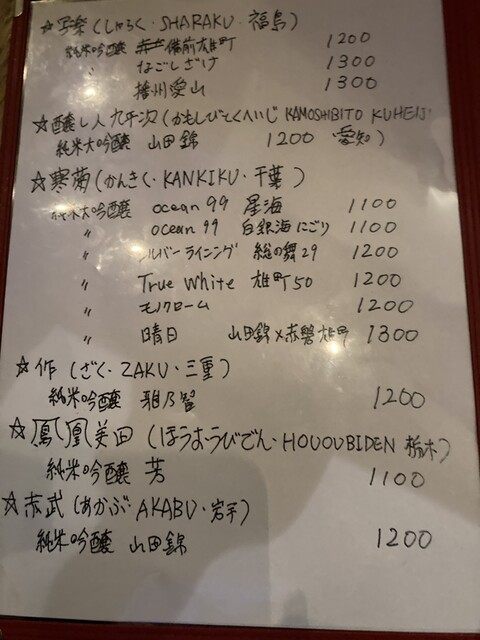 ☆写楽(しゃらく・SHARAKU・福島)
純米吟醸 備前雄町 1200
〃 なごしざけ 1300
〃 播州愛山 1300
☆醸し人九平次(かもしびとくへいじ KAMOSHIBITO KUHEIJI
純米大吟醸 山田錦 1200 愛知)
☆寒菊(かんきく・KANKIKU・千葉)
純米大吟醸 ocean 99 星海 1100
〃 ocean 99 白銀海にごり 1100
〃 シルバーライニング 総の舞29 1200
〃 True White 雄町50 1200
〃 モノクローム 1200
〃 晴日 山田錦×赤磐雄町 1300
☆作(ざく・ZAKU・三重)
純米吟醸 雅乃智 1200
☆鳳凰美田(ほうおうびでん・HOUOUBIDEN 栃木)
純米吟醸 芳 1100
☆赤武(あかぶ・AKABU・岩手)
純米吟醸 山田錦 1200